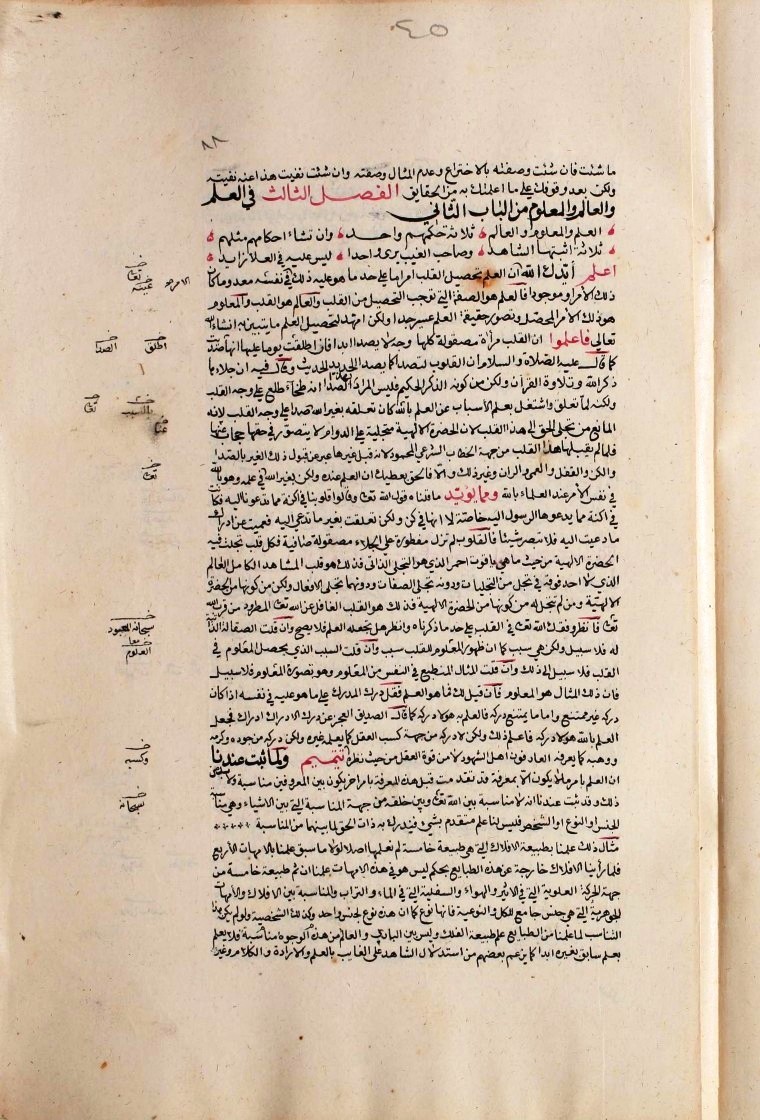 ٤٥
٨٨
ما شئت فان شئت وصفته بالاختراع وعدم المثال وصفته وان شئت نفيت هذا عنه نفيته
ولكن بعد وقوفك على ما اعلمتك به من الحقايق الفصل الثالث في العلم
والعالم والمعلوم من الباب الثاني
العلم والمعلوم والعالم ثلاثة حكمهم واحد وان تشاء احكامهم مثلهم
ثلاثة اثبتها الشاهد وصاحب الغيب يرى واحدا ليس عليه في العلا زايد
اعلم أيدك الله أن العلم تحصيل القلب امرا ما على حد ما هو عليه ذلك في نفسه معدوما كان
ذلك الامر او موجودا فالعلم هو الصفة التي توجب التحصيل من القلب والعالم هو القلب والمعلوم
هو ذلك الامر المحصل وتصور حقيقة العلم عسير جدا ولكن امهد لتحصيل العلم ما يتبين به ان شاء الله
تعالى فاعلموا ان القلب مرآة مصقولة كلها وجه لا يصدا ابدا فان اطلقت يوما عليها انها صدئت
كما قال عليه الصلاة والسلام ان القلوب لتصدا كما يصدا الحديد الحديث وقال فيه ان جلاءها
ذكر الله وتلاوة القرآن ولكن من كونه الذكر الحكيم فليس المراد بهذا الصدا انه طخاء طلع على وجه القلب
ولكنه لما تعلق واشتغل بعلم الأسباب عن العلم بالله كان تعلقه بغير الله صدا على وجه القلب لانه
المانع من تجلي الحق الى هذا القلب لان الحضرة الالهية متجلية على الدوام لا يتصور في حقها حجاب عنها
فلما لم يقبلها هذا القلب من جهة الخطاب الشرعي المحمود لانه قبل غيرها عبر عن قبول ذلك الغير بالصدا
والكن والقفل والعمى والران وغير ذلك والا فالحق يعطيك ان العلم عنده ولكن بغير الله في علمه وهو بالله
في نفس الامر عند العلماء بالله ومما يؤيد ما قلناه قول الله تعا وقالوا قلوبنا في اكنة مما تدعونا اليه فكانت
في اكنة مما يدعوها الرسول اليه خاصة لا انها في كن ولكن تعلقت بغير ما تدعى اليه فعميت عن ادراك
ما دعيت اليه فلا تبصر شيئا فالقلوب لم تزل مفطورة على الجلاء مصقولة صافية فكل قلب تجلت فيه
الحضرة الالهية من حيث ما هي ياقوت احمر الذي هو التجلي الذاتي فذلك هو قلب المشاهد الكامل العالم
الذي لا احد فوقه في تجل من التجليات ودونه تجلي الصفات ودونهما تجلي الافعال ولكن من كونها من الحضرة
الالهية ومن لم تتجل له من كونها من الحضرة الالهية فذلك هو القلب الغافل عن الله تعا المطرود من قرب الله
تعا فانظر وفقك الله تعا في القلب على حد ما ذكرناه وانظر هل تجعله العلم فلا يصح وان قلت الصقالة الذاتية
له فلا سبيل ولكن هي سبب كما ان ظهور المعلوم للقلب سبب وان قلت السبب الذي يحصل المعلوم في
القلب فلا سبيل الى ذلك وان قلت المثال المنطبع في النفس من المعلوم وهو تصورة المعلوم فلا سبيل
فان ذلك المثال هو المعلوم فان قيل لك فما هو العلم فقل درك المدرك على ما هو عليه في نفسه اذا كان
دركه غير ممتنع واما ما يمتنع دركه فالعلم به هو لا دركه كما قال الصديق العجز عن درك الادراك ادراك فجعل
العلم بالله هو لا دركه فاعلم ذلك ولكن لا دركه من جهة كسب العقل كما يعلمه غيره ولكن دركه من جوده وكرمه
ووهبه كما يعرفه العارفون اهل الشهود لا من قوة العقل من حيث نظره تتميم ولما ثبت عندنا
ان العلم بامر ما لا يكون الا بمعرفة قد تقدمت قبل هذه المعرفة بامر اخر يكون بين المعروفين مناسبة ولا بد من
ذلك وقد ثبت عندنا انه لا مناسبة بين الله تعا وبين خلقه من جهة المناسبة التي بين الاشياء وهي مناسبة
الجنس او النوع او الشخص فليس لنا علم متقدم بشيء فندرك به ذات الحق لما بينهما من المناسبة
مثال ذلك علمنا بطبيعة الافلاك التي هي طبيعة خامسة لم نعلمها اصلا لولا ما سبق علمنا بالامهات الأربع
فلما رأينا الافلاك خارجة عن هذه الطبايع بحكم ليس هو في هذه الامهات علمنا ان ثم طبيعة خامسة من
جهة الحركة العلوية التي في الاثير والهواء والسفلية التي في الماء والتراب والمناسبة بين الافلاك والأمهات
الجوهرية التي هي جنس جامع للكل والنوعية فانها نوع كما ان هذه نوع لجنس واحد وكذلك الشخصية ولو لم يكن هذا
التناسب لما علمنا من الطبايع علم طبيعة الفلك وليس بين الباري والعالم من هذه الوجوه مناسبة فلا يعلم
بعلم سابق بغيره ابدا كما يزعم بعضهم من استدلال الشاهد على الغايب بالعلم والارادة والكلام وغير
الامر
اطلق
الصدا
بالسبب
تعا
سبحانه المعبود
العلوم
وكسبه
سبحانه